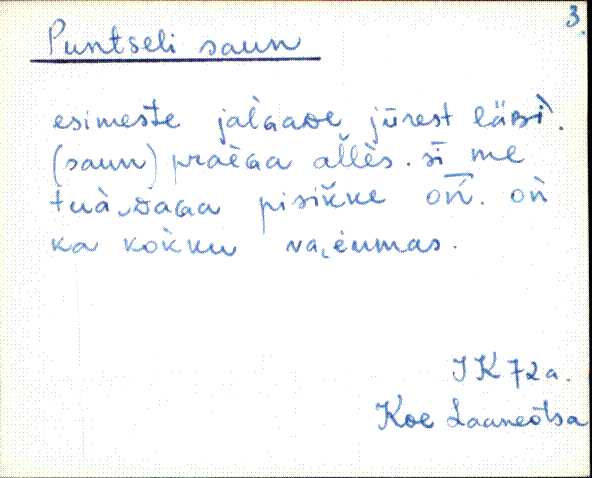 3.
Puntseli saun
esimeste jalGaDe jūrest läBì.
(saun) praèGa allès. sī me
tuà DaGa pisikke oń. oǹ
ka kokku vaėumas.
JK 72 a.
Koe Laaneotsa